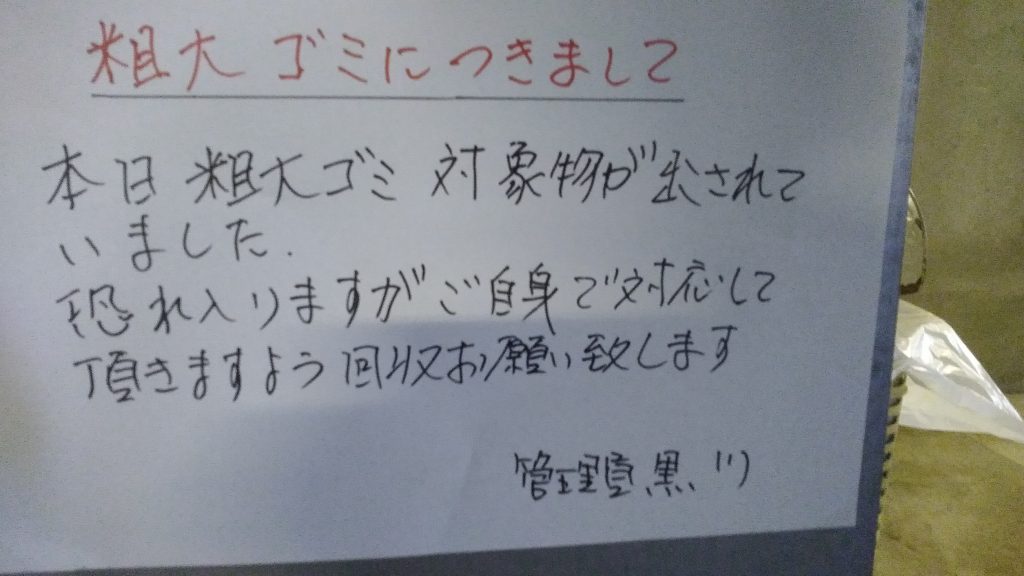 粗大ゴミにつきまして
本日 粗大ゴミ 対象物が出されて
いました.
恐れ入りますがご自身で対応して
頂きますよう回収お願い致します
管理室 黒川